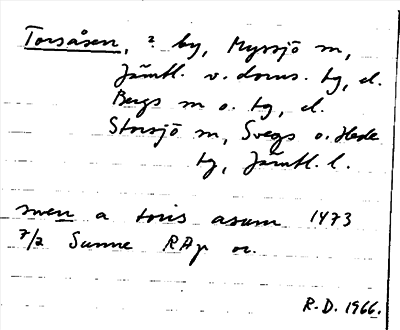 Torsåsen, ? by, Myssjö sn,
Jämtl. v. doms. tg, el.
Bergs sn o. tg, el.
Storsjö sn, Svegs o. Hede
tg, Jämtl. l.
swen a toris asum 1473
7/2 Sunne RAp or.
R.D. 1966.